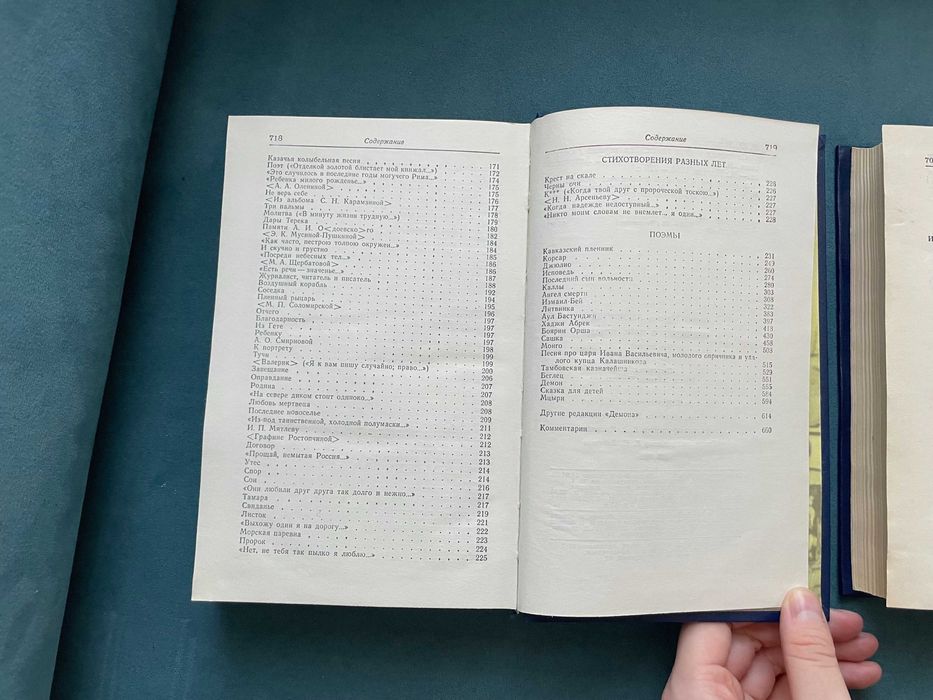 718
Содержание
Казачья колыбельная песня 171
Поэт («Отделкой золотой блистает мой кинжал...») 172
«Это случилось в последние годы могучего Рима...» 174
«Ребенка милого рожденье...» 175
<А. А. Олениной> 175
Не верь себе 176
<Из альбома С. Н. Карамзиной> 177
Три пальмы 178
Молитва («В минуту жизни трудную...») 179
Дары Терека 180
Памяти А. И. О<доевско>го 182
<Э. К. Мусиной-Пушкиной> 184
«Как часто, пестрою толпою окружен...» 184
И скучно и грустно 185
«Посреди небесных тел...» 186
<М. А. Щербатовой> 186
«Есть речи — значенье...» 187
Журналист, читатель и писатель 188
Воздушный корабль 192
Соседка 194
Пленный рыцарь 195
<М. П. Соломирской> 196
Отчего 197
Благодарность 197
Из Гете 197
Ребенку 198
А. О. Смирновой 198
К портрету 199
Тучи 199
<Валерик> («Я к вам пишу случайно; право...») 200
Завещание 206
Оправдание 207
Родина 207
«На севере диком стоит одиноко...» 208
Любовь мертвеца 208
Последнее новоселье 209
«Из-под таинственной, холодной полумаски...» 211
И. П. Мятлеву 212
<Графине Ростопчиной> 212
Договор 213
«Прощай, немытая Россия...» 213
Утес 214
Спор 214
Сон 216
«Они любили друг друга так долго и нежно...» 217
Тамара 217
Свиданье 219
Листок 221
«Выхожу один я на дорогу...» 222
Морская царевна 223
Пророк 224
«Нет, не тебя так пылко я люблю...» 225
Содержание
719
СТИХОТВОРЕНИЯ РАЗНЫХ ЛЕТ
Крест на скале 226
Черны очи 226
К*** («Когда твой друг с пророческой тоскою...») 227
<Н. Н. Арсеньеву> 227
«Когда надежде недоступный...» 227
«Никто моим словам не внемлет... я один...» 228
ПОЭМЫ
Кавказский пленник 231
Корсар 249
Джюлио 260
Исповедь 274
Последний сын вольности 280
Каллы 303
Ангел смерти 308
Измаил-Бей 322
Литвинка 383
Аул Бастунджи 397
Хаджи Абрек 418
Боярин Орша 430
Сашка 458
Монго 503
Песня про царя Ивана Васильевича, молодого опричника и уда-
лого купца Калашникова 515
Тамбовская казначейша 529
Беглец 551
Демон 555
Сказка для детей 584
Мцыри 594
Другие редакции «Демона» 614
Комментарии 660
70
И